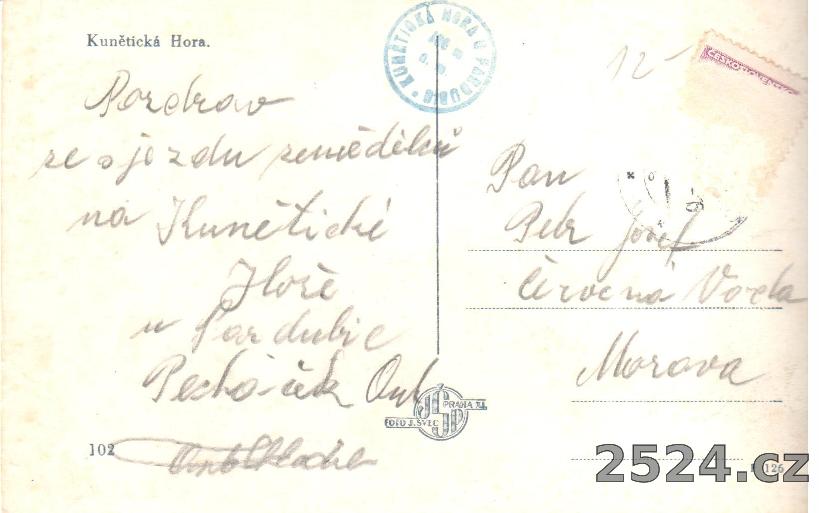 Kunětická Hora.
KUNĚTICKÁ HORA U PARDUBIC
12-
ČESKOSLOVENSKO
Pozdrav
ze sjezdu zemědělců
na Kunětické
Hoře
u Pardubic
Pecháček
Pan
Petr Josef
Červená Voda
Morava
JŠP
PRAHA XI.
FOTO J. ŠVEC
102
2524.cz
126